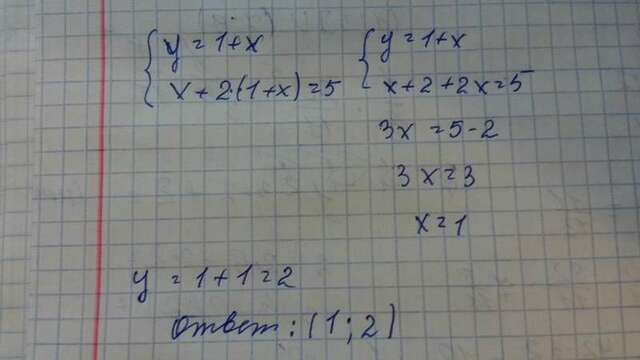 y = 1+x
x + 2·(1+x) = 5
y = 1+x
x+2+2x=5
3x = 5-2
3x=3
x=1
y = 1+1=2
ответ: (1;2)